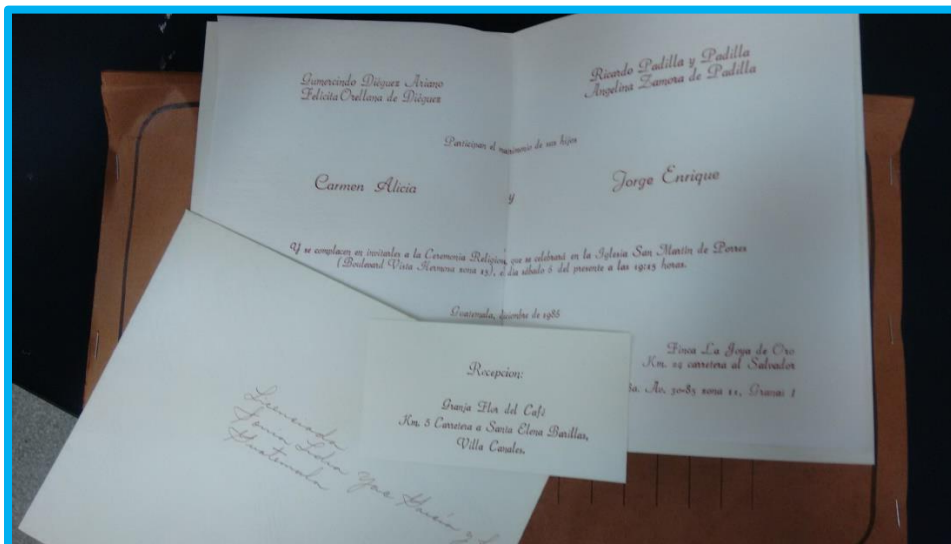 Gumercindo Diéguez Axiano
Felicita Orellana de Diéguez
Ricardo Padilla y Padilla
Angelina Zamora de Padilla
Participan el matrimonio de sus hijos
Carmen Alicia
y
Jorge Enrique
Y se complacen en invitarles a la Ceremonia Religiosa que se celebrará en la Iglesia San Martín de Porres
(Boulevard Vista Hermosa zona 15), el día sábado 6 del presente a las 19:15 horas.
Guatemala, diciembre de 1986
Finca La Joya de Oro
Km. 24 carretera al Salvador
Av. 30-85 zona 11, Granai
Recepcion:
Granja Flor del Café
Km. 5 Carretera a Santa Elena Barillas,
Villa Canales.
Licenciada
Sonia Lidia Yac García
Guatemala